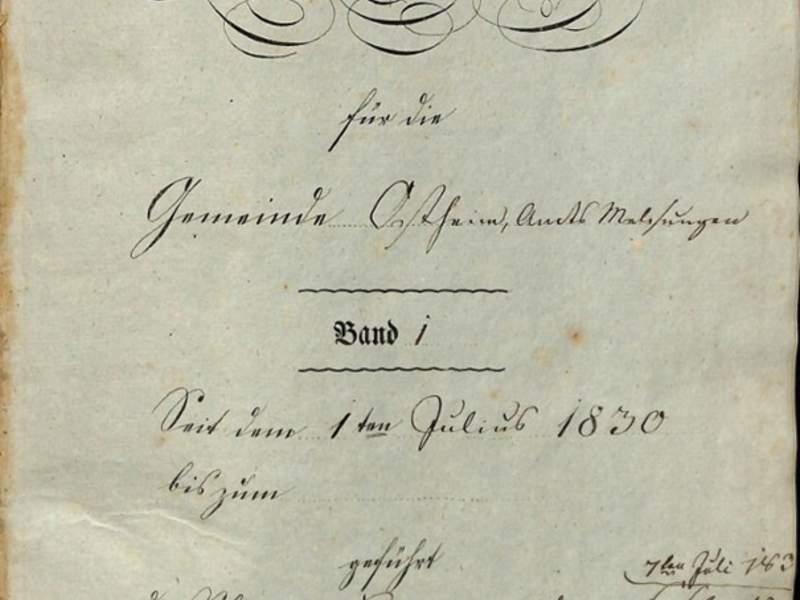 für die
Gemeinde Ostheim, Amts Melsungen
Band 1
Seit dem 1ten Julius 1830
bis zum
geführt
7ten Juli 183